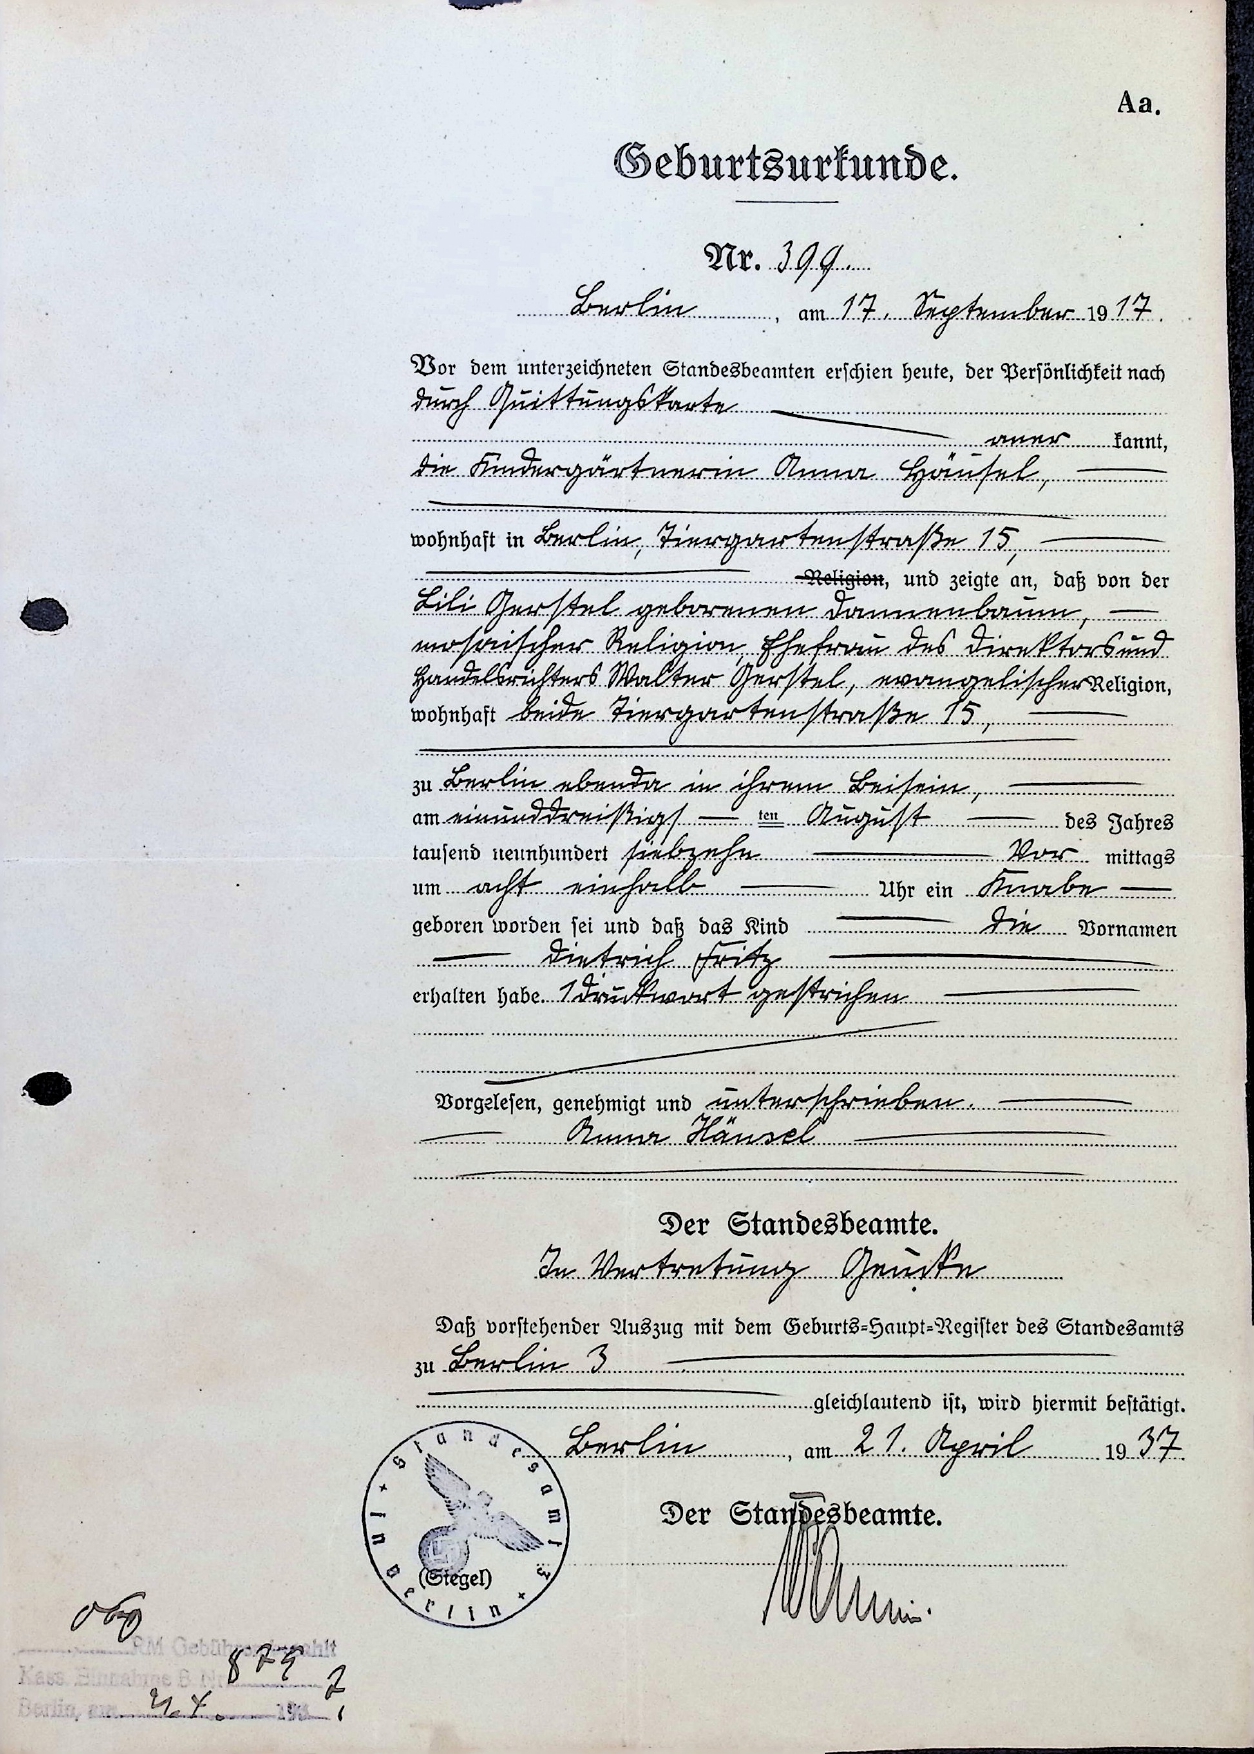 Aa.
Geburtsurkunde.
Nr. 399.
Berlin, am 17. September 1917.
Vor dem unterzeichneten Standesbeamten erschien heute, der Persönlichkeit nach
durch Quittungskarte
aner kannt,
die Kindergärtnerin Anna Häusel,
wohnhaft in Berlin, Tiergartenstraße 15,
Religion, und zeigte an, daß von der
Lili Gerstel geborenen Dannenbaum,
mosaischer Religion, Ehefrau des Direktors und
Handelsrichters Walter Gerstel, evangelischer Religion,
wohnhaft beide Tiergartenstraße 15,
zu Berlin ebenda in ihrem Beisein,
am einunddreißigs ten August des Jahres
tausend neunhundert siebzehn Vor mittags
um acht einhalb Uhr ein Knabe
geboren worden sei und daß das Kind die Vornamen
Dietrich Fritz
erhalten habe. 1 Druckwort gestrichen
Vorgelesen, genehmigt und unterschrieben.
Anna Hänsel
Der Standesbeamte.
In Vertretung Geucke
Daß vorstehender Auszug mit dem Geburts-Haupt-Register des Standesamts
zu Berlin 3
gleichlautend ist, wird hiermit bestätigt.
Berlin, am 21. April 1937
Der Standesbeamte.
Standesamt 3 Berlin
(Siegel)
0,60
RM Gebühren bezahlt
Kass. Einnahme B. Nr. 879
Berlin, am 21.4. 193 7